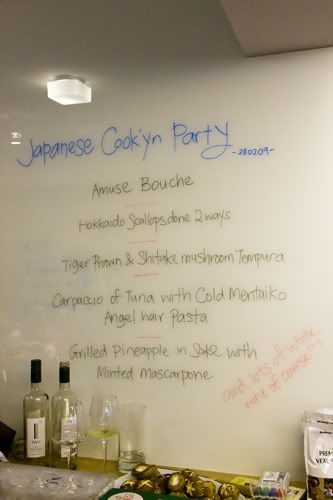 Japanese Cook'yn Party
-280209-
Amuse Bouche
Hokkaido Scallops done 2 ways
Tiger Prawn & Shitake mushroom Tempura
Carpaccio of Tuna with Cold Mentaiko
Angel hair Pasta
Grilled Pineapple in Sake with
Minted mascarpone
and lots of white
wine of course!!